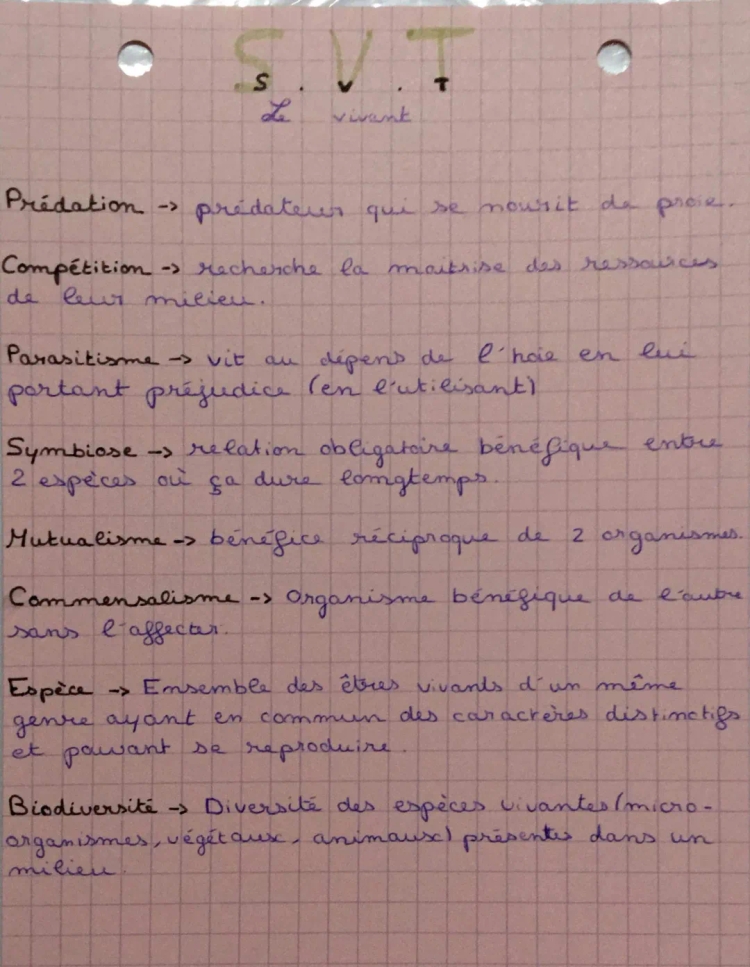 S.V.T
S . V . T
Le vivant
Prédation -> prédateur qui se nourit de proie.
Compétition -> recherche la maitrise des ressources
de leur milieu.
Parasitisme -> vit au dépens de l'hôte en lui
portant préjudice (en l'utilisant)
Symbiose -> relation obligatoire bénéfique entre
2 espèces où ça dure longtemps.
Mutualisme -> bénéfice réciproque de 2 organismes.
Commensalisme -> Organisme bénéfique de l'autre
sans l'affecter.
Espèce -> Ensemble des êtres vivants d'un même
genre ayant en commun des caractères distinctifs
et pouvant se reproduire.
Biodiversité -> Diversité des espèces vivantes (micro-
organismes, végétaux, animaux) présentes dans un
milieu.